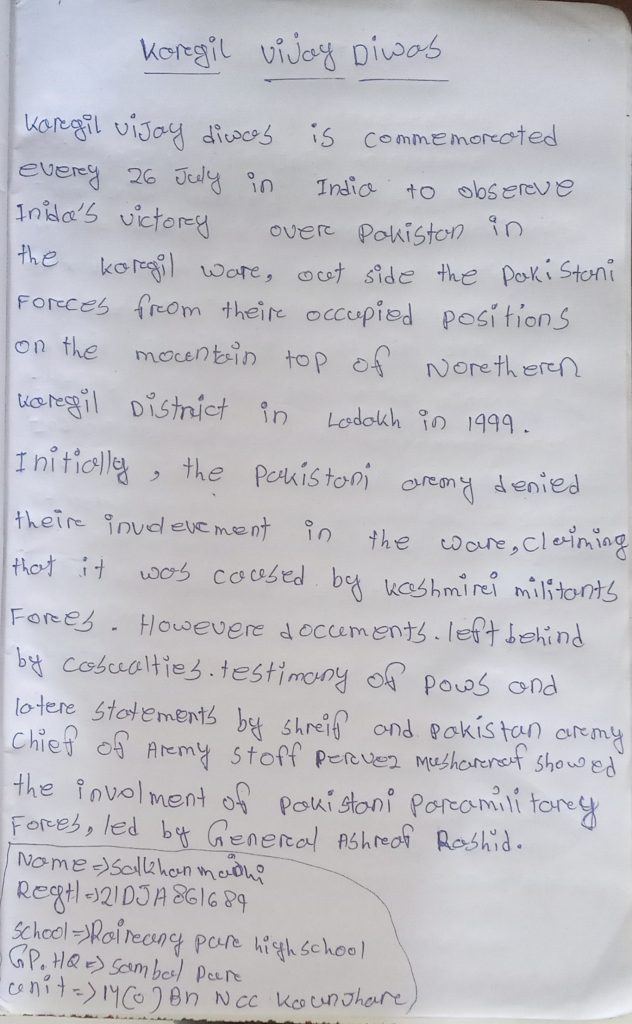 Karegil Vijay Diwas
Karegil vijay diwas is commemoreated
everey 26 July in India to obsereve
Inida's victorey overe Pakistan in
the karegil ware, out side the Pakistani
Forcees from theire occupied positions
on the mountain top of Noretheren
Karegil District in Ladakh in 1999.
Initially, the Pakistani aremy denied
theire involevement in the ware, claiming
that it was caused by kashmirei militants
Forces. Howevere documents. left behind
by casualties. testimany of pows and
latere statements by shreif and pakistan aremy
Chief of Aremy staff Pervez Musharraf showed
the involment of pakistani Paramilitarey
Forces, led by General Ashraf Rashid.
Name => Salkhan
Regtl => 21DJA861689
School => Raireang pure high school
GP. HQ => Sambal Pure
unit => 14(O) Bn Ncc